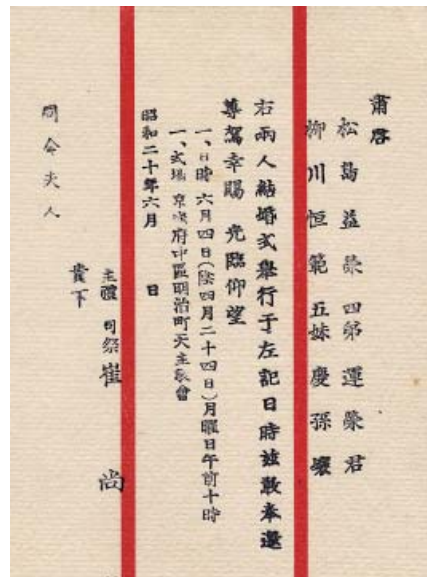 肅啓
松島益榮 四弟 運榮君
柳川恒範 五妹 慶孫孃
右兩人結婚式舉行于左記日時玆敢奉邀
尊駕幸賜 光臨仰望
一、日時 六月四日(陰四月二十四日)月曜日午前十時
一、式場 京城府中區明治町天主敎會
昭和二十年六月 日
主禮 司祭 崔 尚
貴下
同令夫人